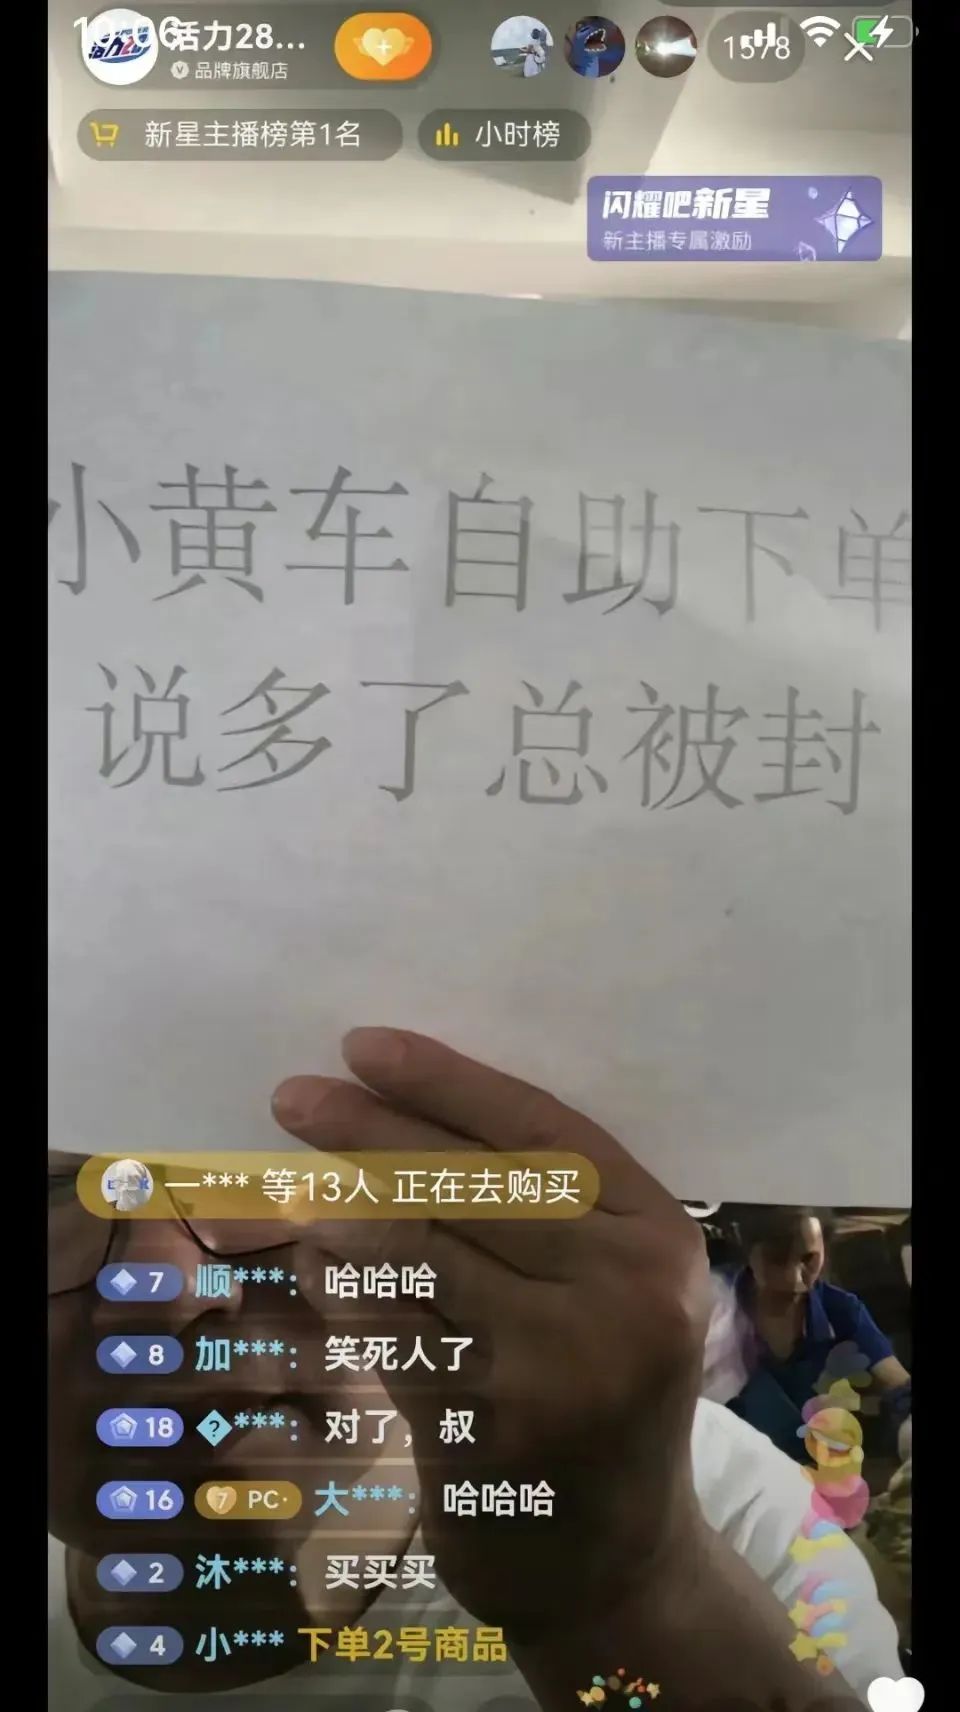 10:06
活力28...
品牌旗舰店
1578
新星主播榜第1名
小时榜
闪耀吧新星
新主播专属激励
小黄车自助下单
说多了总被封
一*** 等13人 正在去购买
7 顺***: 哈哈哈
8 加***: 笑死人了
18 �***: 对了，叔
16 7 PC· 大***: 哈哈哈
2 沐***: 买买买
4 小*** 下单2号商品